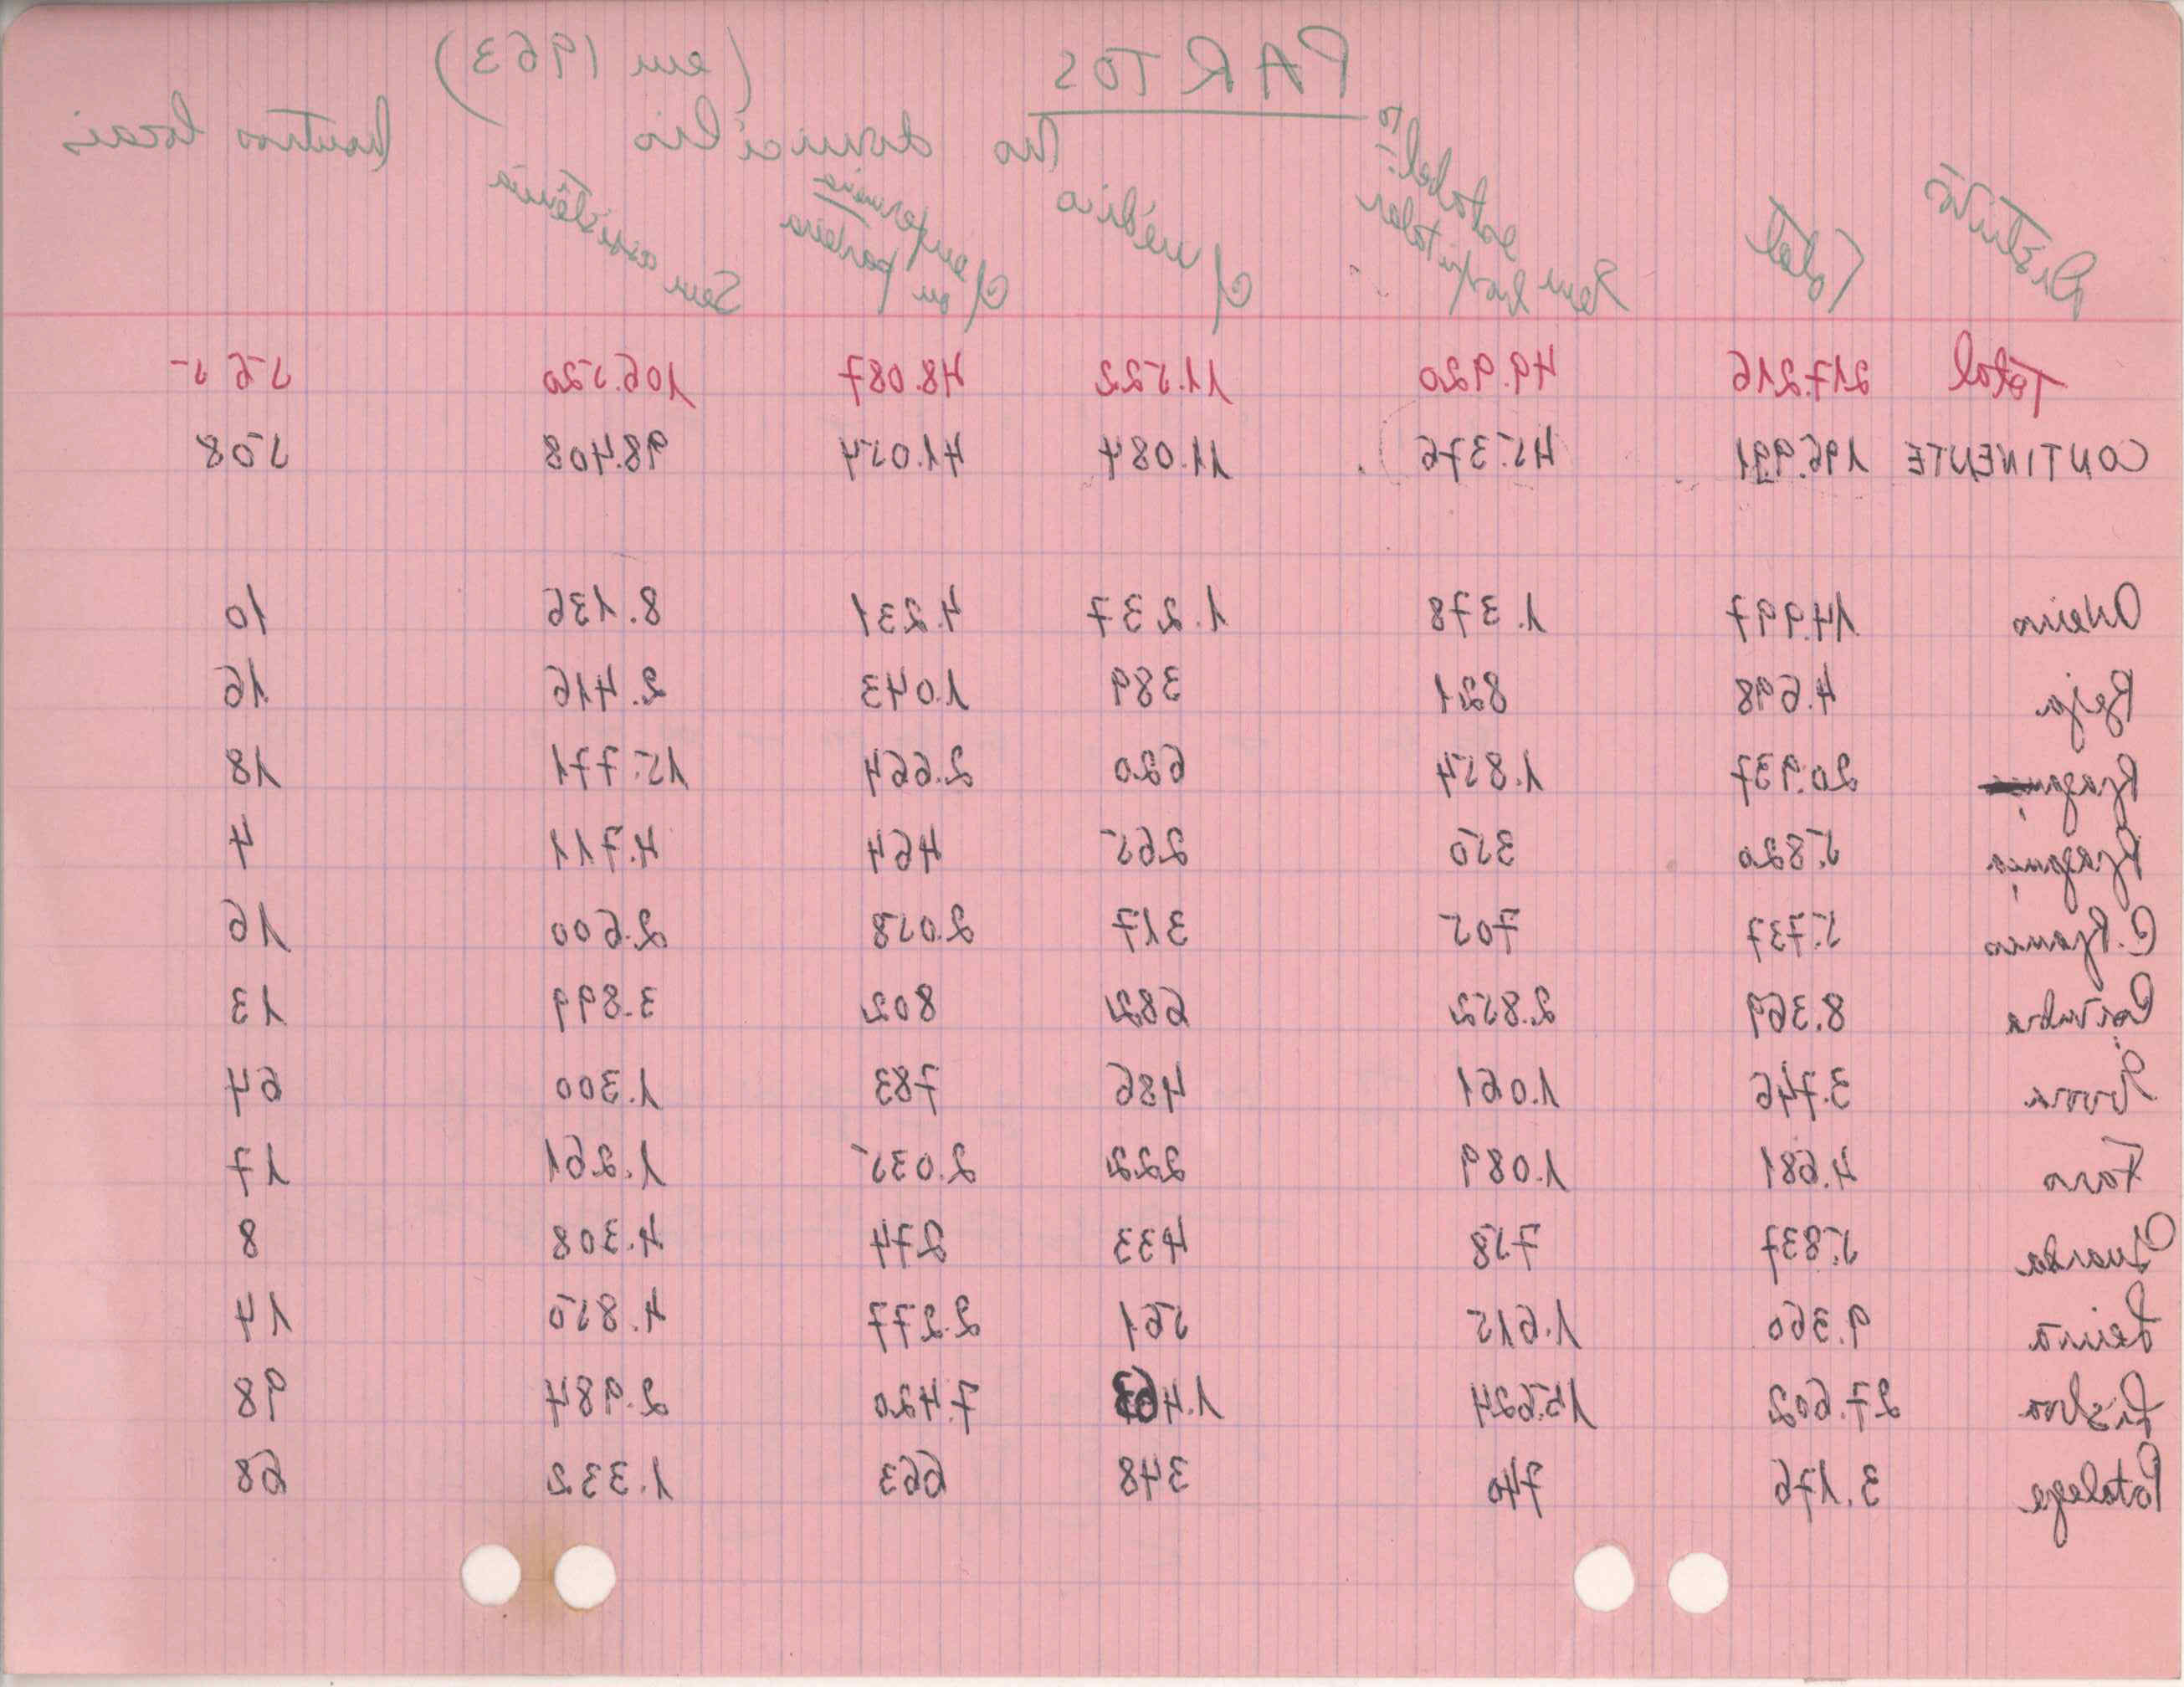 PARTOS (em 1963)
No domicílio
Noutros locais
Distritos
Total
Em estabelº hospitalar
c/ médico
c/ enfermeira ou parteira
Sem assistência
Total 217.216 49.920 11.522 48.087 106.520 565
CONTINENTE 196.991 45.376 11.084 41.054 98.408 508
Aveiro 14.997 1.378 1.237 4.231 8.136 10
Beja 4.698 821 389 1.043 2.416 16
Braga 20.937 1.854 620 2.664 15.771 18
Bragança 5.820 350 265 464 4.711 4
C. Branco 5.737 705 317 2.058 2.600 16
Coimbra 8.369 2.852 682 802 3.899 13
Évora 3.746 1.061 486 783 1.300 64
Faro 4.681 1.089 222 2.035 1.261 17
Guarda 5.837 758 433 274 4.308 8
Leiria 9.360 1.615 561 2.277 4.850 14
Lisboa 27.602 15.624 1.463 7.420 2.984 98
Portalegre 3.176 740 348 663 1.332 68